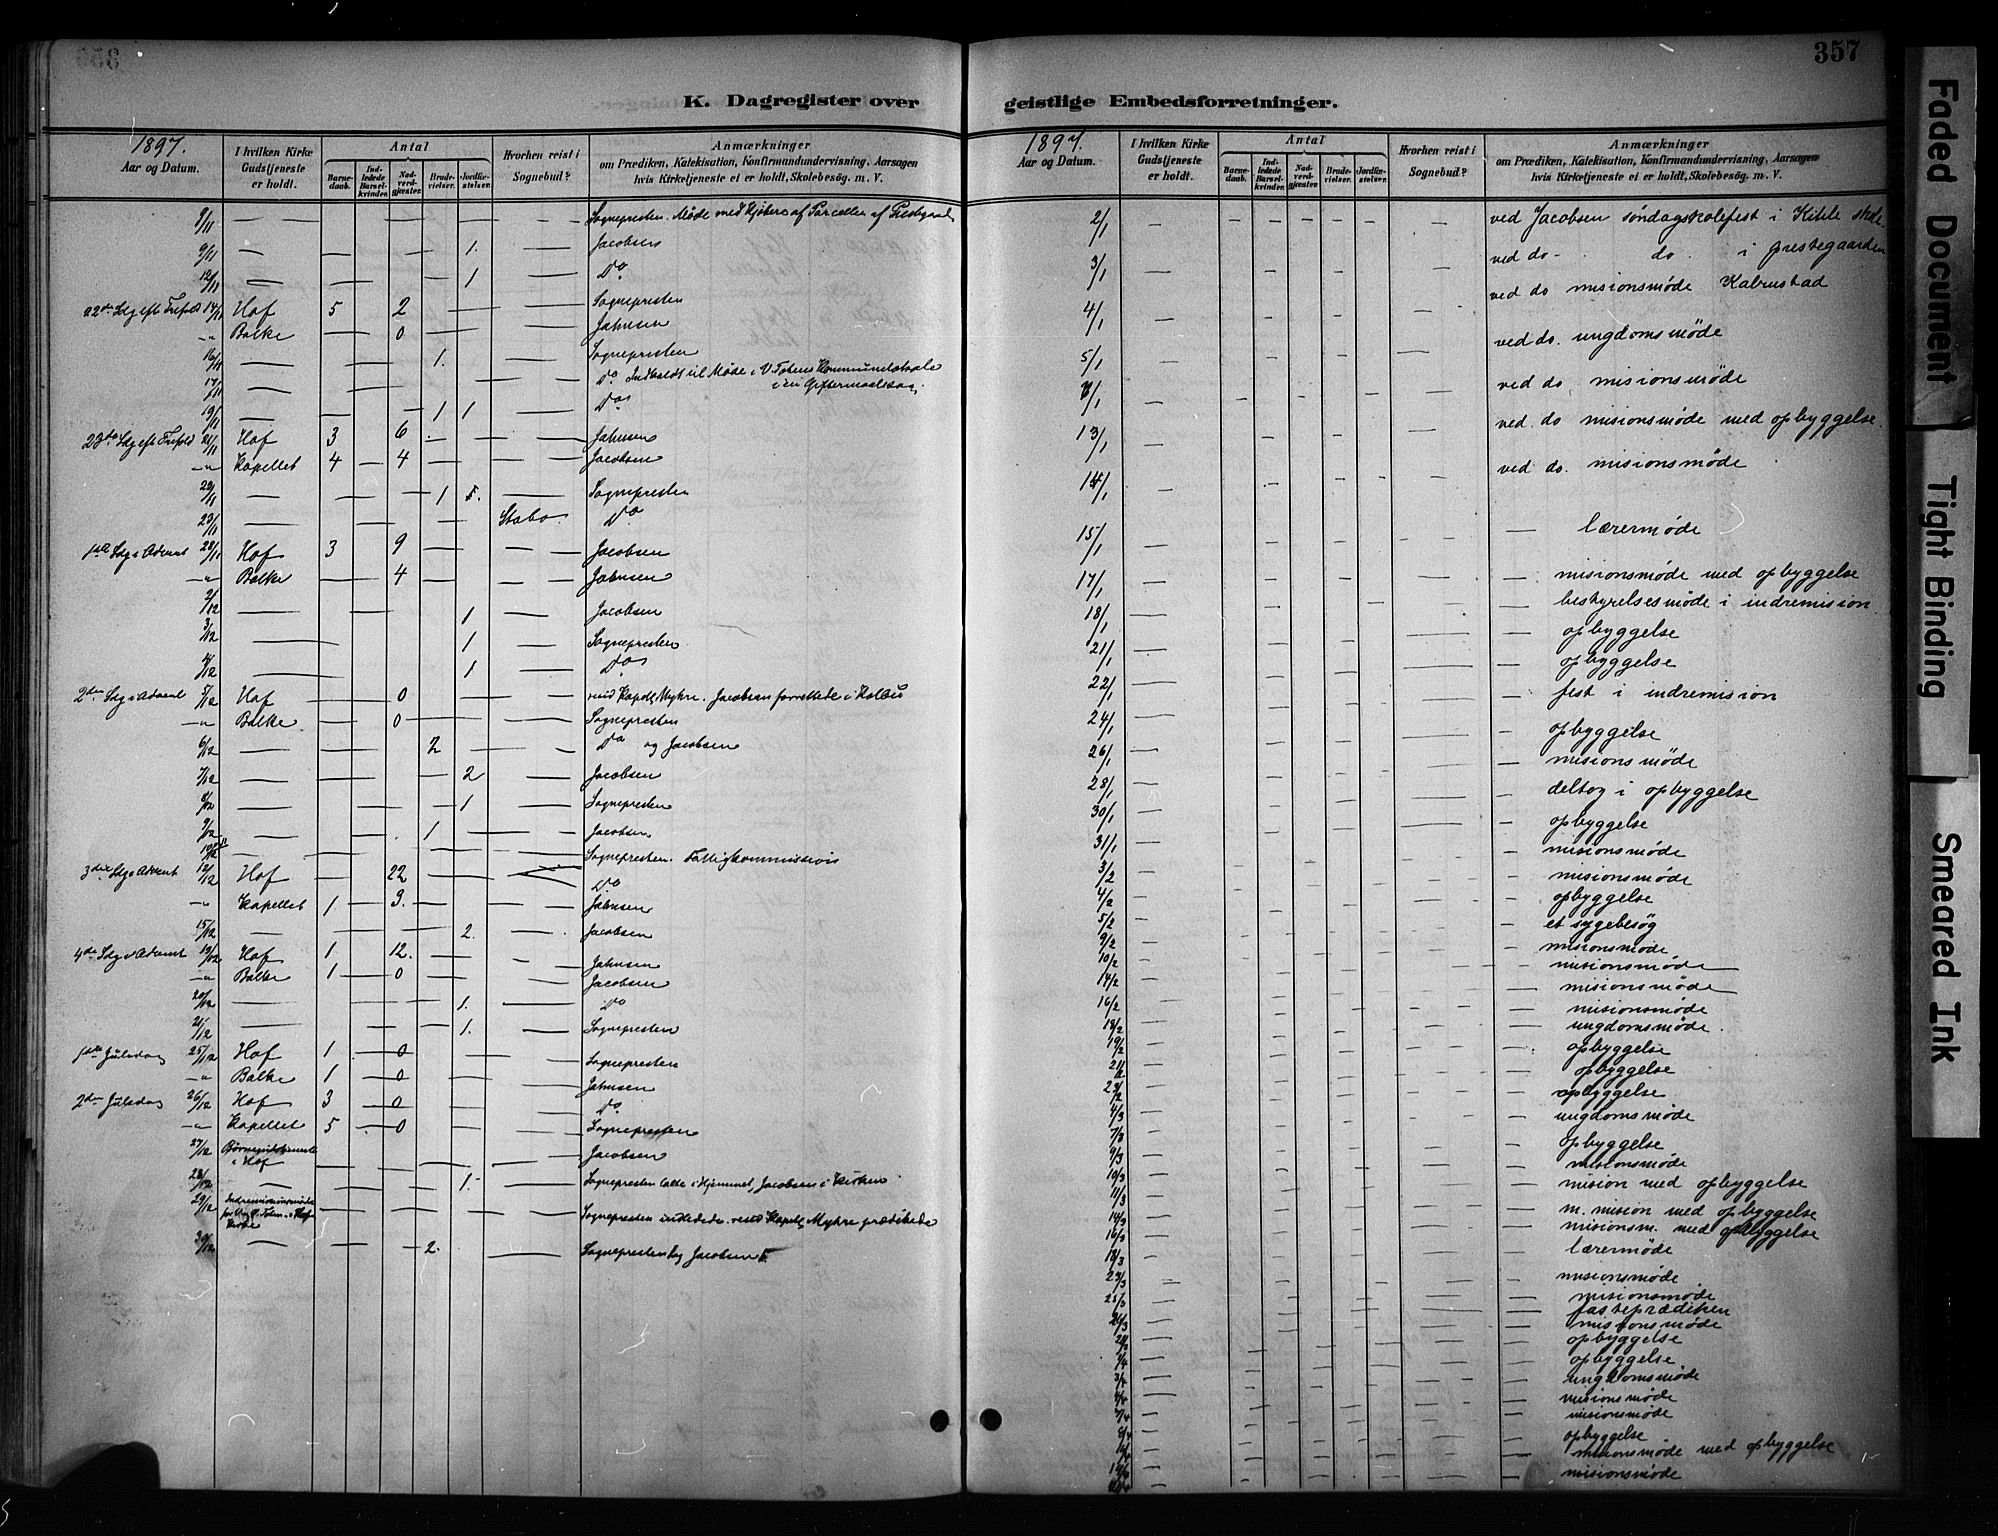 357
K. Dagregister over
geistlige Embedsforretninger.
1897.
Aar og Datum.
I hvilken Kirke Gudstjeneste er holdt.
Antal
Barnedaab.
Indledede Barselkvinder.
Nadverdgjæster.
Brudevielser.
Jordfæstelser.
Hvorhen reist i Sognebud?
Anmærkninger
om Prædiken, Katekisation, Konfirmandundervisning, Aarsagen
hvis Kirketjeneste ei er holdt, Skolebesøg. m. V.
9/11 — — — — — — — Sognepresten. Møde med Kjøbere af Parceller af Prestegaard
9/11 — — — — — 1. — Jacobsen
12/11 — — — — — 1 — Do
22de Sdg eft Trefold. 14/11 Hof 5 — 2 — — — Sognepresten
-"- Balke — — 0 — — — Jahnsen
16/11 — — — — 1. — — Sognepresten
17/11 — — — — — — — Do Indkaldt til Møde i V. Totens Kommunelokale
i en Giftermaalssag.
19/11 — — — — 1 1 — Do
23de Sdg eft Trefold 21/11 Hof 3 6 — — — Jahnsen
-"- Kapellet 4 — 4 — — — Jacobsen
22/11 — — — — 1 5. — Sognepresten
23/11 — — — — — — Stabo. Do
1ste Sdg i Advent 28/11 Hof 3 9 — — — Jacobsen
-"- Balke — — 4 — — — Jahnsen
2/12 — — — — — 1 — Jacobsen
3/12 — — — — — 1 — Sognepresten
4/12 — — — — — 1 — Do
2den Sdg i Advent 5/12 Hof — — 0 — — — resid Kapell. Myhre. Jacobsen forrettede i Kolbu
-"- Balke — — 0 — — — Sognepresten
6/12 — — — — 2 — — Do og Jacobsen
7/12 — — — — — 2 — Jacobsen
8/12 — — — — — 1 — Sognepresten
9/12 — — — — 1 — — Jacobsen
10/12 — — — — — — — Sognepresten. Fattigkommission
3die Sdg i Advent 12/12 Hof — — 22 — — — Do
-"- Kapellet 1 — 9. — — — Jahnsen
15/12 — — — — — 2. — Jacobsen
4de Sdg i Advent 19/12 Hof 1 — 12. — — — Jahnsen
-"- Balke 1 — 0 — — — Jacobsen
20/12 — — — — — 1. — Do
21/12 — — — — — 1. — Sognepresten
1ste Juledag 25/12 Hof 1 — 0 — — — Sognepresten
-"- Balke 1 — 0 — — — Jahnsen
2den Juledag 26/12 Hof 3 — 0 — — — Do
-"- Kapellet 5 — 0 — — — Sognepresten
27/12 Børnegudstjeneste i Hof — — — — — — Jacobsen
28/12 — — — — — 1.- — Sognepresten talte i Hjemmet, Jacobsen i Kirken
29/12 Indremissionsmøde for V. og Ø. Toten i Hof Kirke — — — — — — Sognepresten indledede. resid Kapell. Myhre prædikede
30/12 — — — — 2. — — Sognepresten og Jacobsen
1897.
Aar og Datum.
I hvilken Kirke Gudstjeneste er holdt.
Antal
Barnedaab.
Indledede Barselkvinder.
Nadverdgjæster.
Brudevielser.
Jordfæstelser.
Hvorhen reist i Sognebud?
Anmærkninger
om Prædiken, Katekisation, Konfirmandundervisning, Aarsagen
hvis Kirketjeneste ei er holdt, Skolebesøg. m. V.
2/1 ved Jacobsen søndagskolefest i Kihle skole
3/1 ved do - do. i prestegaarden
4/1 ved do misionsmøde Kabrustad
5/1 ved do. ungdomsmøde
7/1 ved do misionsmøde
13/1 ved do misionsmøde med opbyggelse.
14/1 ved do. misionsmøde
15/1 — lærermøde
17/1 — misionsmøde med opbyggelse
18/1 — bestyrelsesmøde i indremision
21/1 — opbyggelse
22/1 — opbyggelse
24/1 — fest i indremision
26/1 — opbyggelse
28/1 — misionsmøde
30/1 — deltog i opbyggelse
31/1 — opbyggelse
3/2 — misionsmøde
4/2 — misionsmøde
5/2 — opbyggelse
9/2 — et sygebesøg
10/2 — misionsmøde
14/2 — misionsmøde
16/2 — misionsmøde
18/2 — misionsmøde
19/2 — ungdomsmøde.
21/2 — opbyggelse
23/2 — opbyggelse
4/3 — opbyggelse
7/3 — ungdomsmøde
9/3 — opbyggelse
10/3 — misionsmøde
11/3 — mision med opbyggelse
14/3 — m. mision med opbyggelse
16/3 — misionsm. med opbyggelse
18/3 — lærermøde
23/3 — misionsmøde
25/3 — misionsmøde
26/3 — fasteprædiken
28/3 — misionsmøde
1/4 — opbyggelse
3/4 — opbyggelse
4/4 — ungdomsmøde
7/4 — misionsmøde
8/4 — misionsmøde
— opbyggelse
— misionsmøde med opbyggelse
— misionsmøde
Faded Document
Tight Binding
Smeared Ink